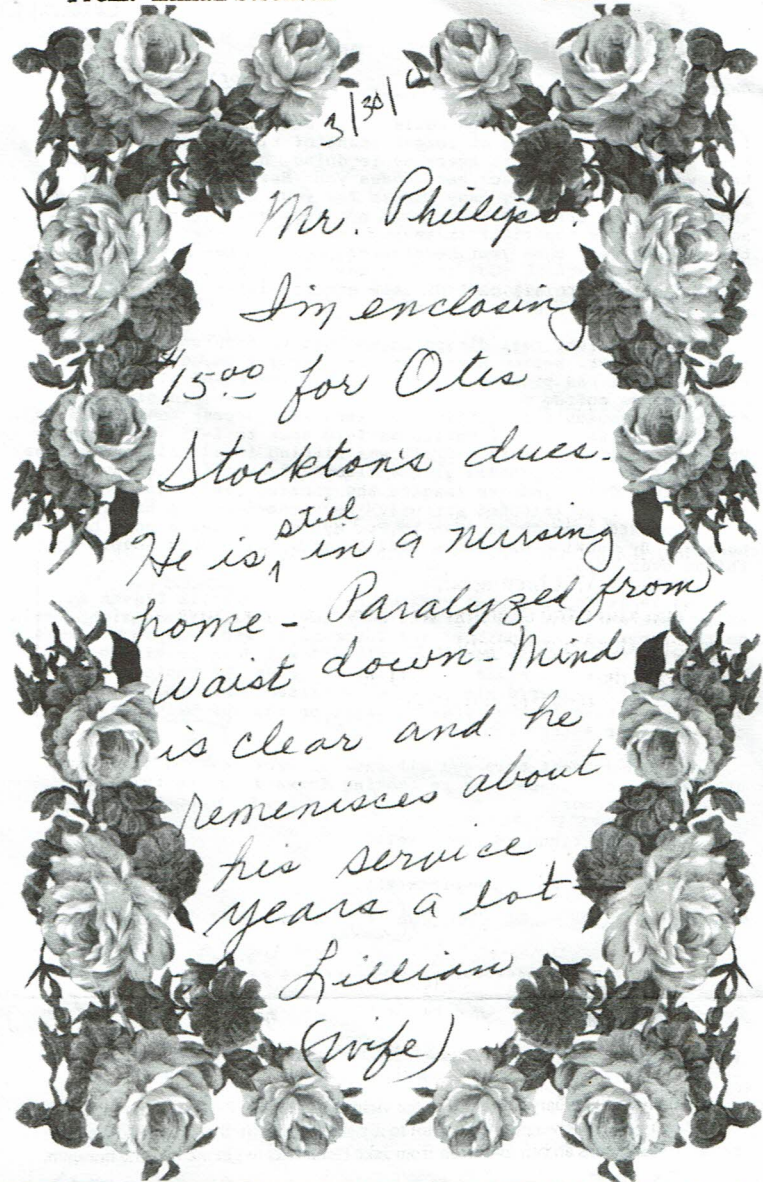 3/30/01
Mr. Phillips:
I'm enclosing
$15.00 for Otis
Stockton's dues.
He is still in a nursing
home - Paralyzed from
waist down - Mind
is clear and he
remenisces about
his service
years a lot
Lillian
(wife)